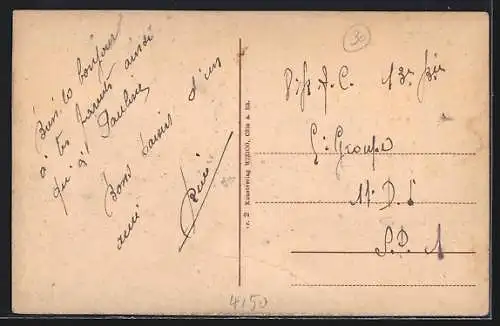 Bien le bonjour
à tes parents ainsi
qu'à Pauline
Bons baisers d'un
ami
Nr. 2 Kunstverlag WEZCO, Cöln a. Rh.
30
A. C. 13e
Groupe
D.
S. P. 1
4150